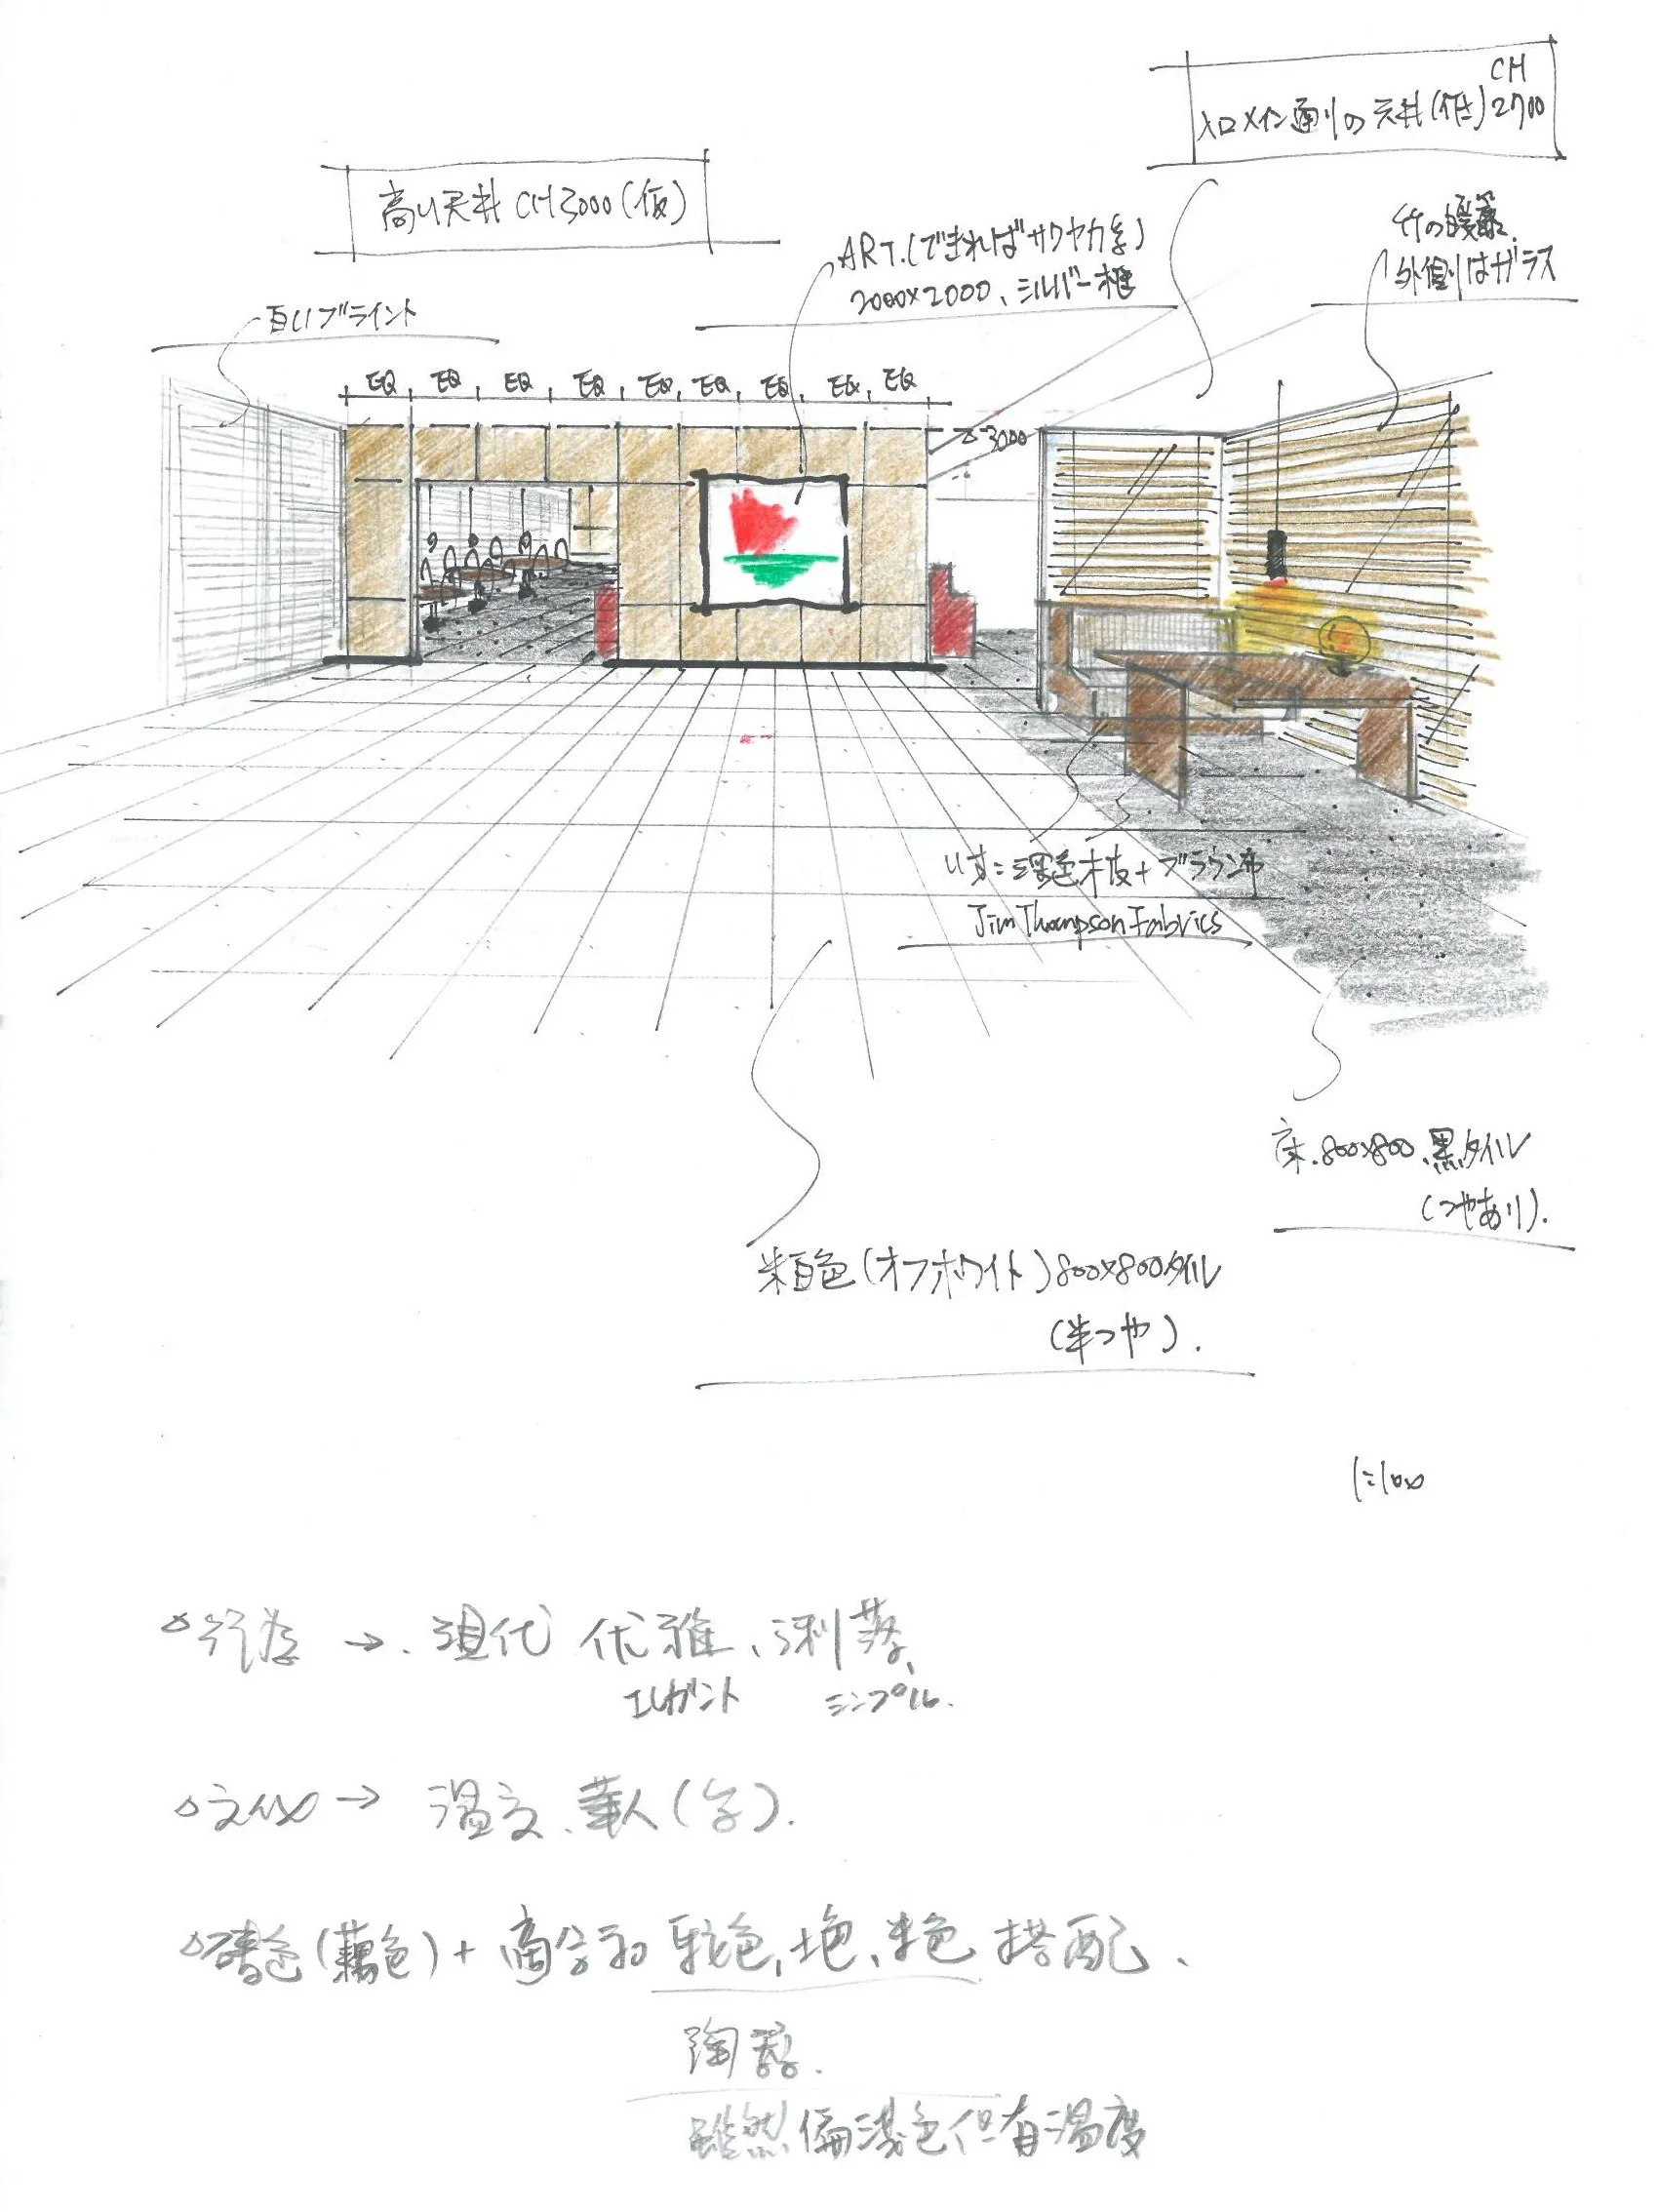 CH
入口メイン通りの天井(低)2700
高い天井 CH3000(仮)
ART.(できればサクヤカ
2000×2000、シルバー框
竹の
外側はガラス
白いブライント
EQ EQ EQ EQ EQ EQ EQ EQ EQ
3000
いす:深色木皮+ブラウン布
Jim Thompson Fabrics
床.800×800.黒タイル
(つやあり).
米白色(オフホワイト)800×800タイル
(半つや).
1:100
→. 現代 优雅、俐落、
エレガント シンプル.
文化→ 温文、華人(字).
(藕色)+適合和 駝色、土色、米色 搭配、
陶器.
雖然偏淺色但有温度